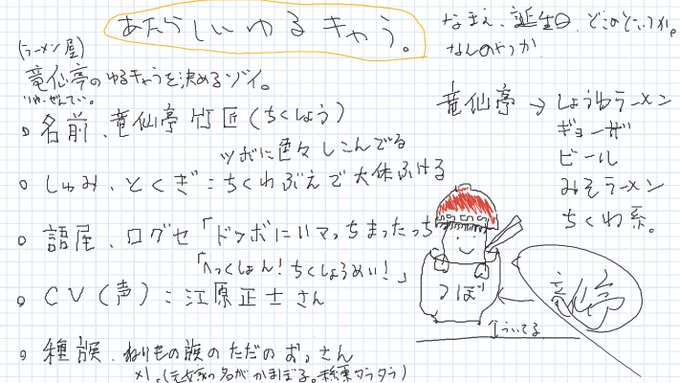 あたらしいゆるキャラ。
なまえ、誕生日、どこのどいつか。
なんのやつか
(ラーメン屋)
竜仙亭のゆるキャラを決めるゾイ。
りゅうぜんてい。
名前、竜仙亭 竹匠(ちくしょう)
ツボに色々しこんでる
しゅみ、とくぎ:ちくわぶえで大体ふける
語尾、口グセ「ドツボにハマっちまったっち」
「へっくしょん!ちくしょうめい!」
CV(声):江原正士さん
種族、ねりもの族のただのおっさん
×1。(元嫁の名がかまぼ子。
竜仙亭→しょうゆラーメン
ギョーザ
ビール
みそラーメン
ちくわ系。
つぼ
ういてる
竜仙亭